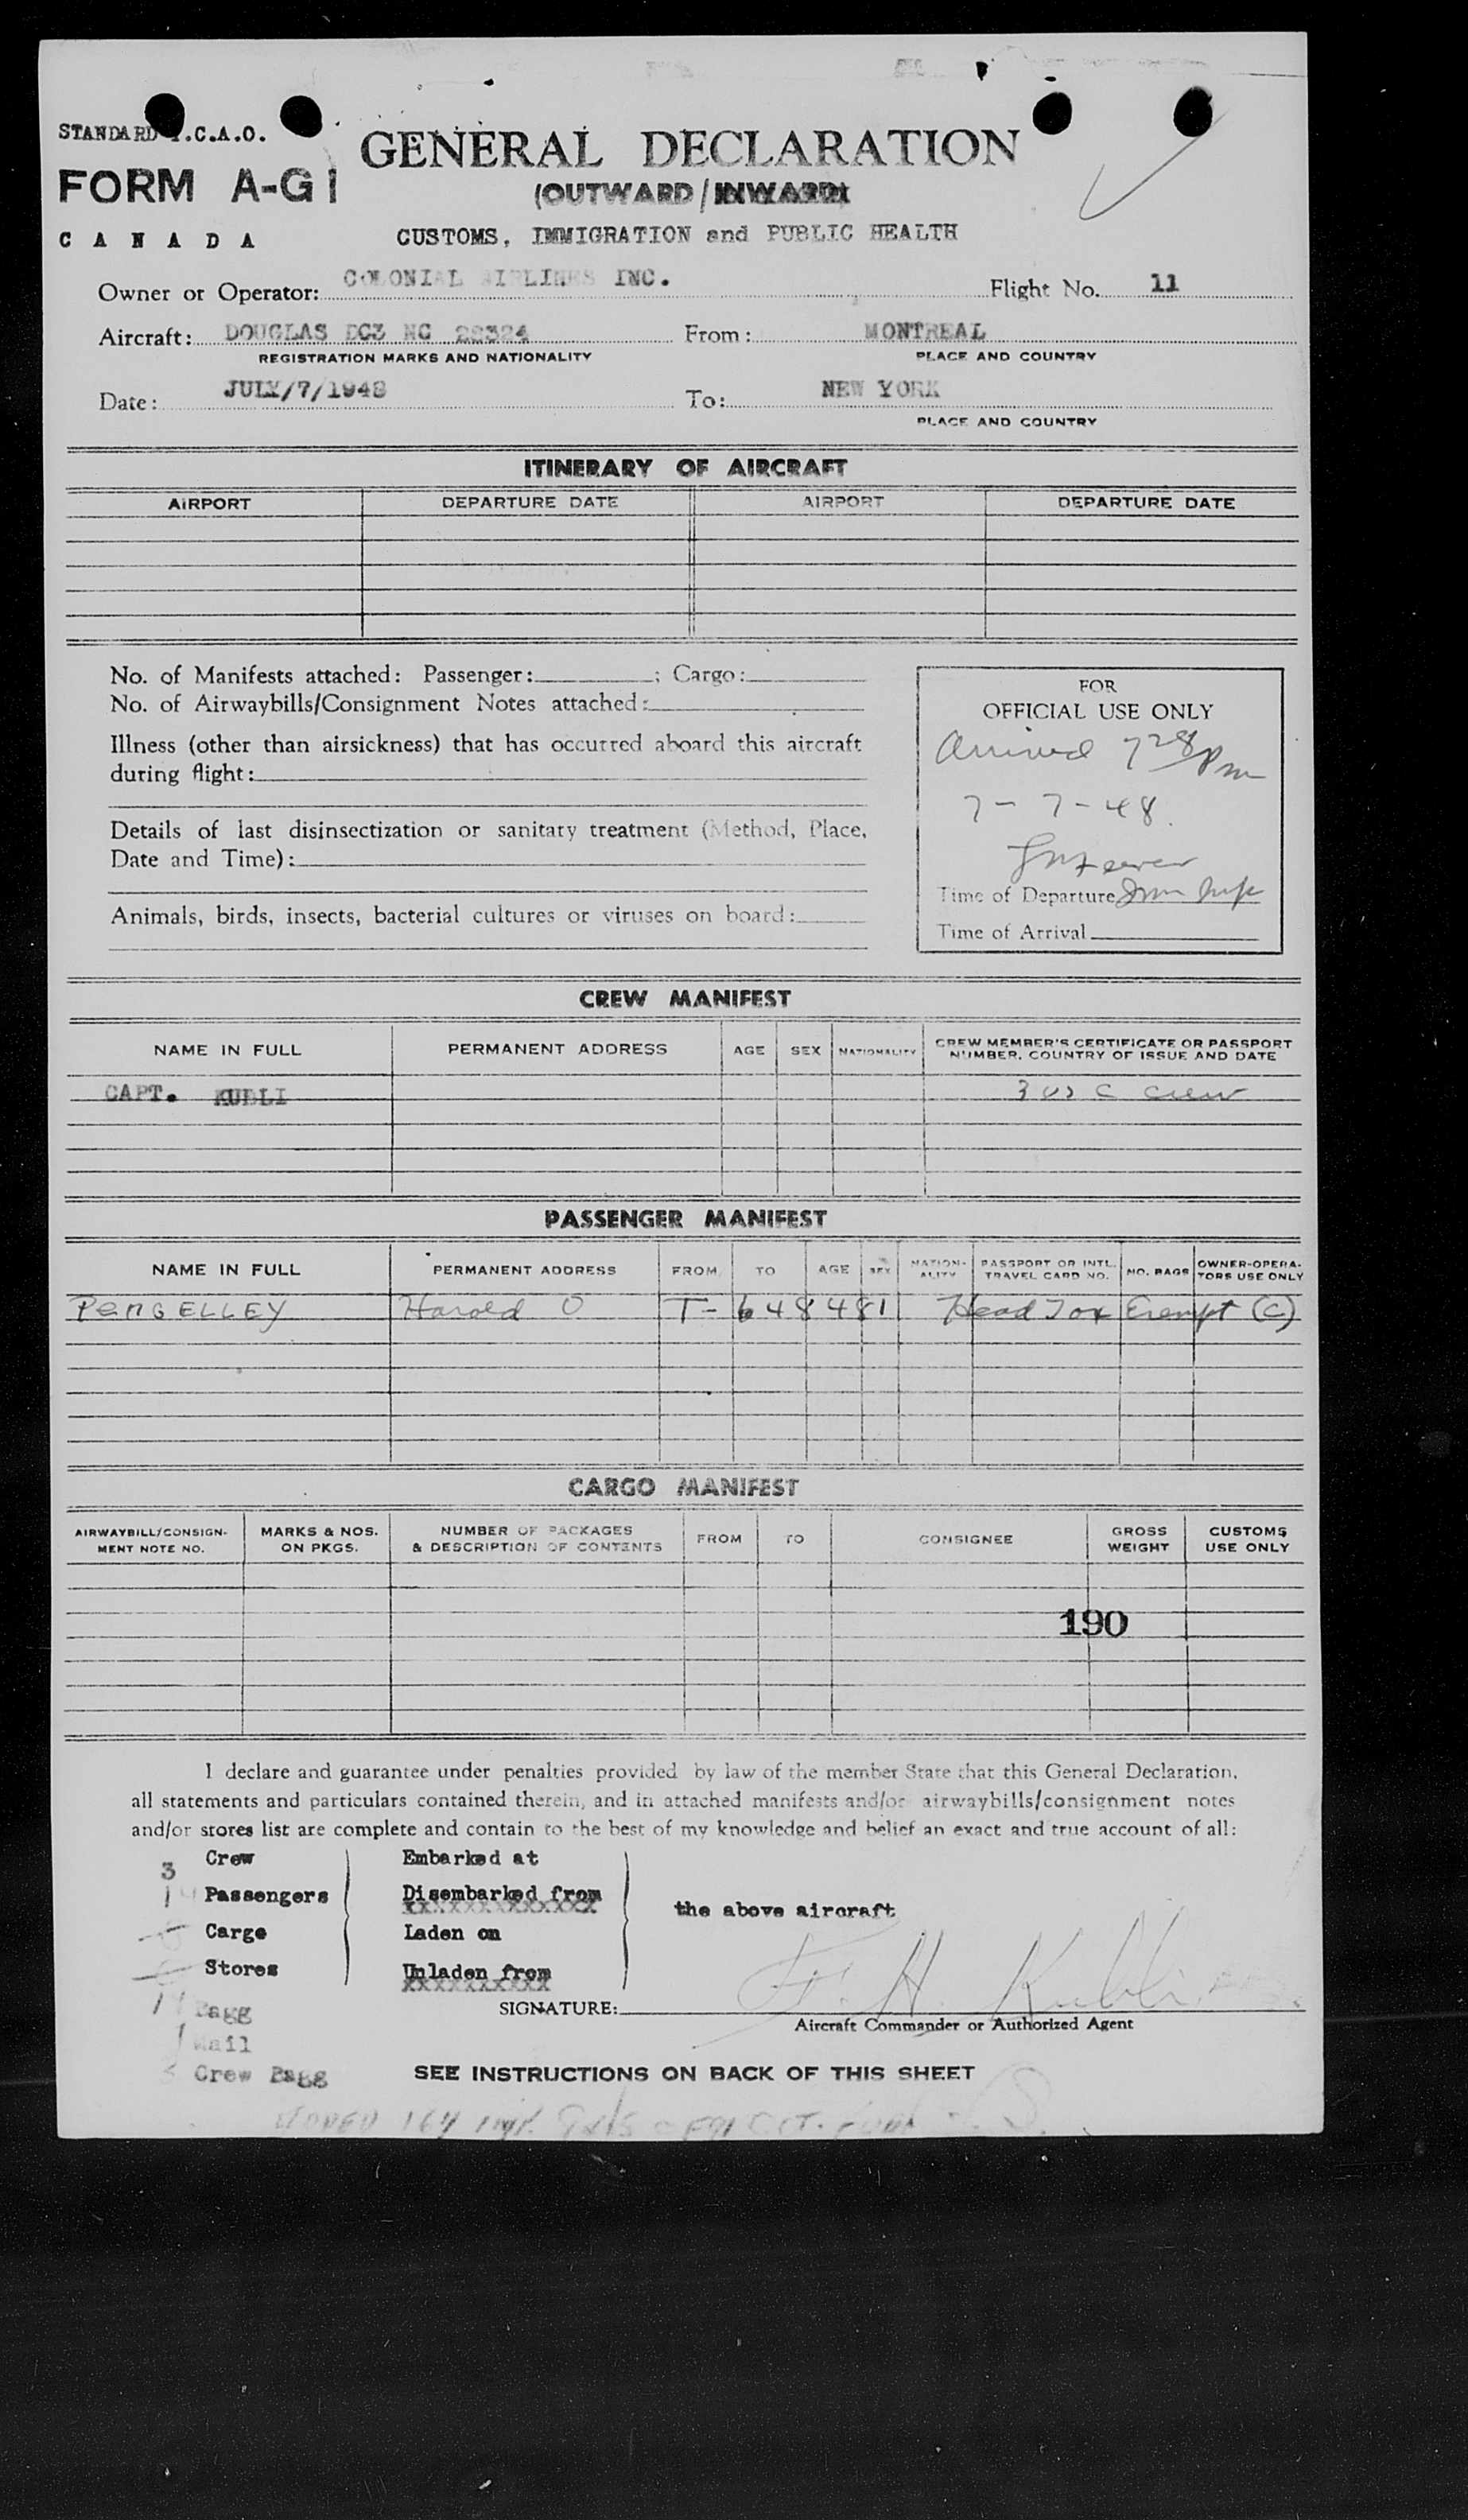 STANDARD I.C.A.O.
FORM A-G1
CANADA
GENERAL DECLARATION
(OUTWARD/INWARD)
CUSTOMS, IMMIGRATION and PUBLIC HEALTH
Owner or Operator: COLONIAL AIRLINES INC. Flight No. 11
Aircraft: DOUGLAS DC3 NC 28324 From: MONTREAL
REGISTRATION MARKS AND NATIONALITY PLACE AND COUNTRY
Date: JULY/7/1948 To: NEW YORK
PLACE AND COUNTRY
ITINERARY OF AIRCRAFT
AIRPORT DEPARTURE DATE AIRPORT DEPARTURE DATE
No. of Manifests attached: Passenger: ; Cargo:
No. of Airwaybills/Consignment Notes attached:
Illness (other than airsickness) that has occurred aboard this aircraft
during flight:
Details of last disinsectization or sanitary treatment (Method, Place,
Date and Time):
Animals, birds, insects, bacterial cultures or viruses on board:
FOR
OFFICIAL USE ONLY
Arrived 7 28 Pm
7-7-48.
Time of Departure Imm Insp
Time of Arrival
CREW MANIFEST
NAME IN FULL PERMANENT ADDRESS AGE SEX NATIONALITY CREW MEMBER'S CERTIFICATE OR PASSPORT
NUMBER, COUNTRY OF ISSUE AND DATE
CAPT. KUBLI 3 US C crew
PASSENGER MANIFEST
NAME IN FULL PERMANENT ADDRESS FROM TO AGE SEX NATION-
ALITY PASSPORT OR INTL.
TRAVEL CARD NO. NO. BAGS OWNER-OPERA-
TORS USE ONLY
PENGELLEY Harold O T-648481 Head Tax Exempt (C)
CARGO MANIFEST
AIRWAYBILL/CONSIGN-
MENT NOTE NO. MARKS & NOS.
ON PKGS. NUMBER OF PACKAGES
& DESCRIPTION OF CONTENTS FROM TO CONSIGNEE GROSS
WEIGHT CUSTOMS
USE ONLY
190
I declare and guarantee under penalties provided by law of the member State that this General Declaration,
all statements and particulars contained therein, and in attached manifests and/or airwaybills/consignment notes
and/or stores list are complete and contain to the best of my knowledge and belief an exact and true account of all:
3 Crew Embarked at
14 Passengers Disembarked from
the above aircraft
Cargo Laden on
Stores Unladen from
14 Bagg
SIGNATURE: F. H. Kubli
Aircraft Commander or Authorized Agent
1 Mail
Crew Bagg
SEE INSTRUCTIONS ON BACK OF THIS SHEET